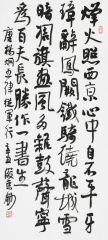 烽火照西京心中自不平牙
璋辞鳳闕鉄騎繞龍城雪
暗凋旗画風多雑鼓聲寧
為百夫長勝作一書生
唐楊炯五律従軍行